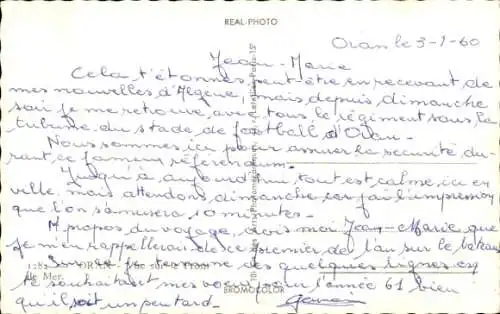 REAL-PHOTO
Oran le 3-1-60
Jean-Marie
Cela t'étonnes peut-être en recevant de
mes nouvelles d'Algérie, mais depuis dimanche
soir je me retrouve, avec tous le régiment sous la
tribune du stade de football d'Oran-
Nous sommes ici pour assurer la sécurité du-
rant ce fameux référendum-
Jusqu'à aujourd'hui, tout est calme ici en
ville, mais attendons dimanche car j'ai l'impression
que l'on s'amusera 10 minutes-
A propos du voyage, crois moi Jean-Marie que
je m'en rappellerai de ce premier de l'an sur le bateau
Sur ce je termine ces quelques lignes en
te souhaitant mes voeux pour l'année 61 bien
qu'il soit un peu tard-
ORAN
de Mer.
BROMOCOLOR